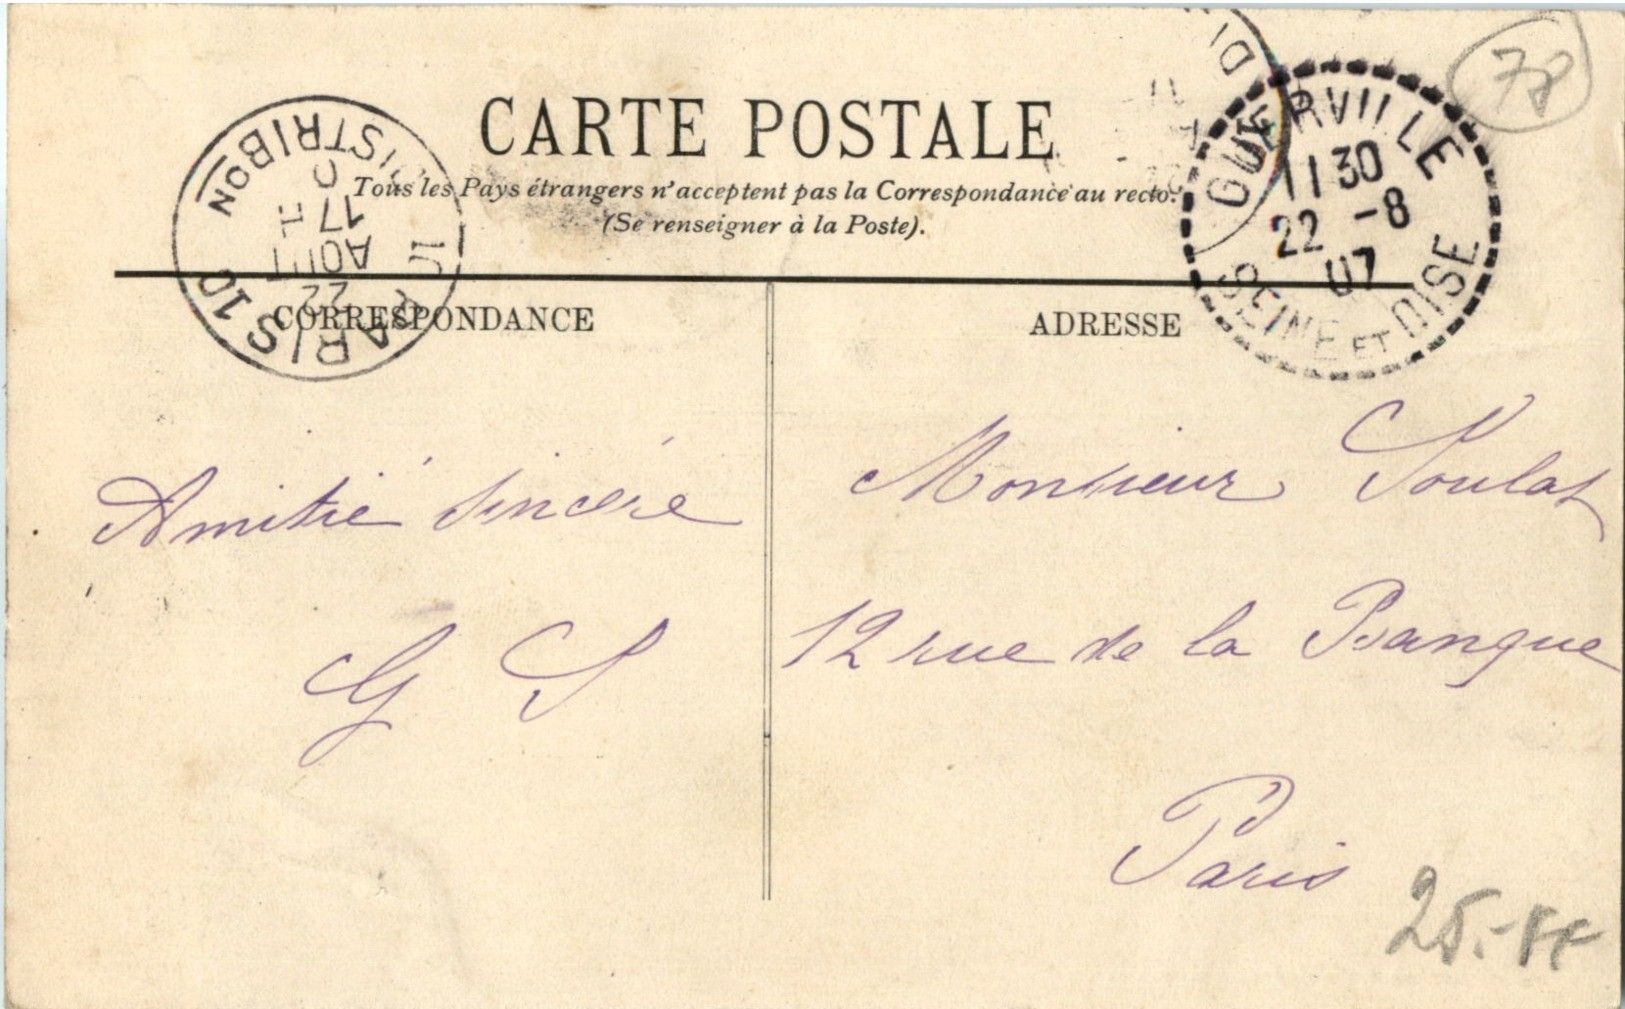 CARTE POSTALE
Tous les Pays étrangers n'acceptent pas la Correspondance au recto.
(Se renseigner à la Poste).
CORRESPONDANCE
ADRESSE
PARIS 10
DISTRIBON
17
AOUT
22
GUERVILLE
11 30
22 -8
07
SEINE ET OISE
78
Amitié sincère
G S
Monsieur Soulat
12 rue de la Banque
Paris
25.-FF